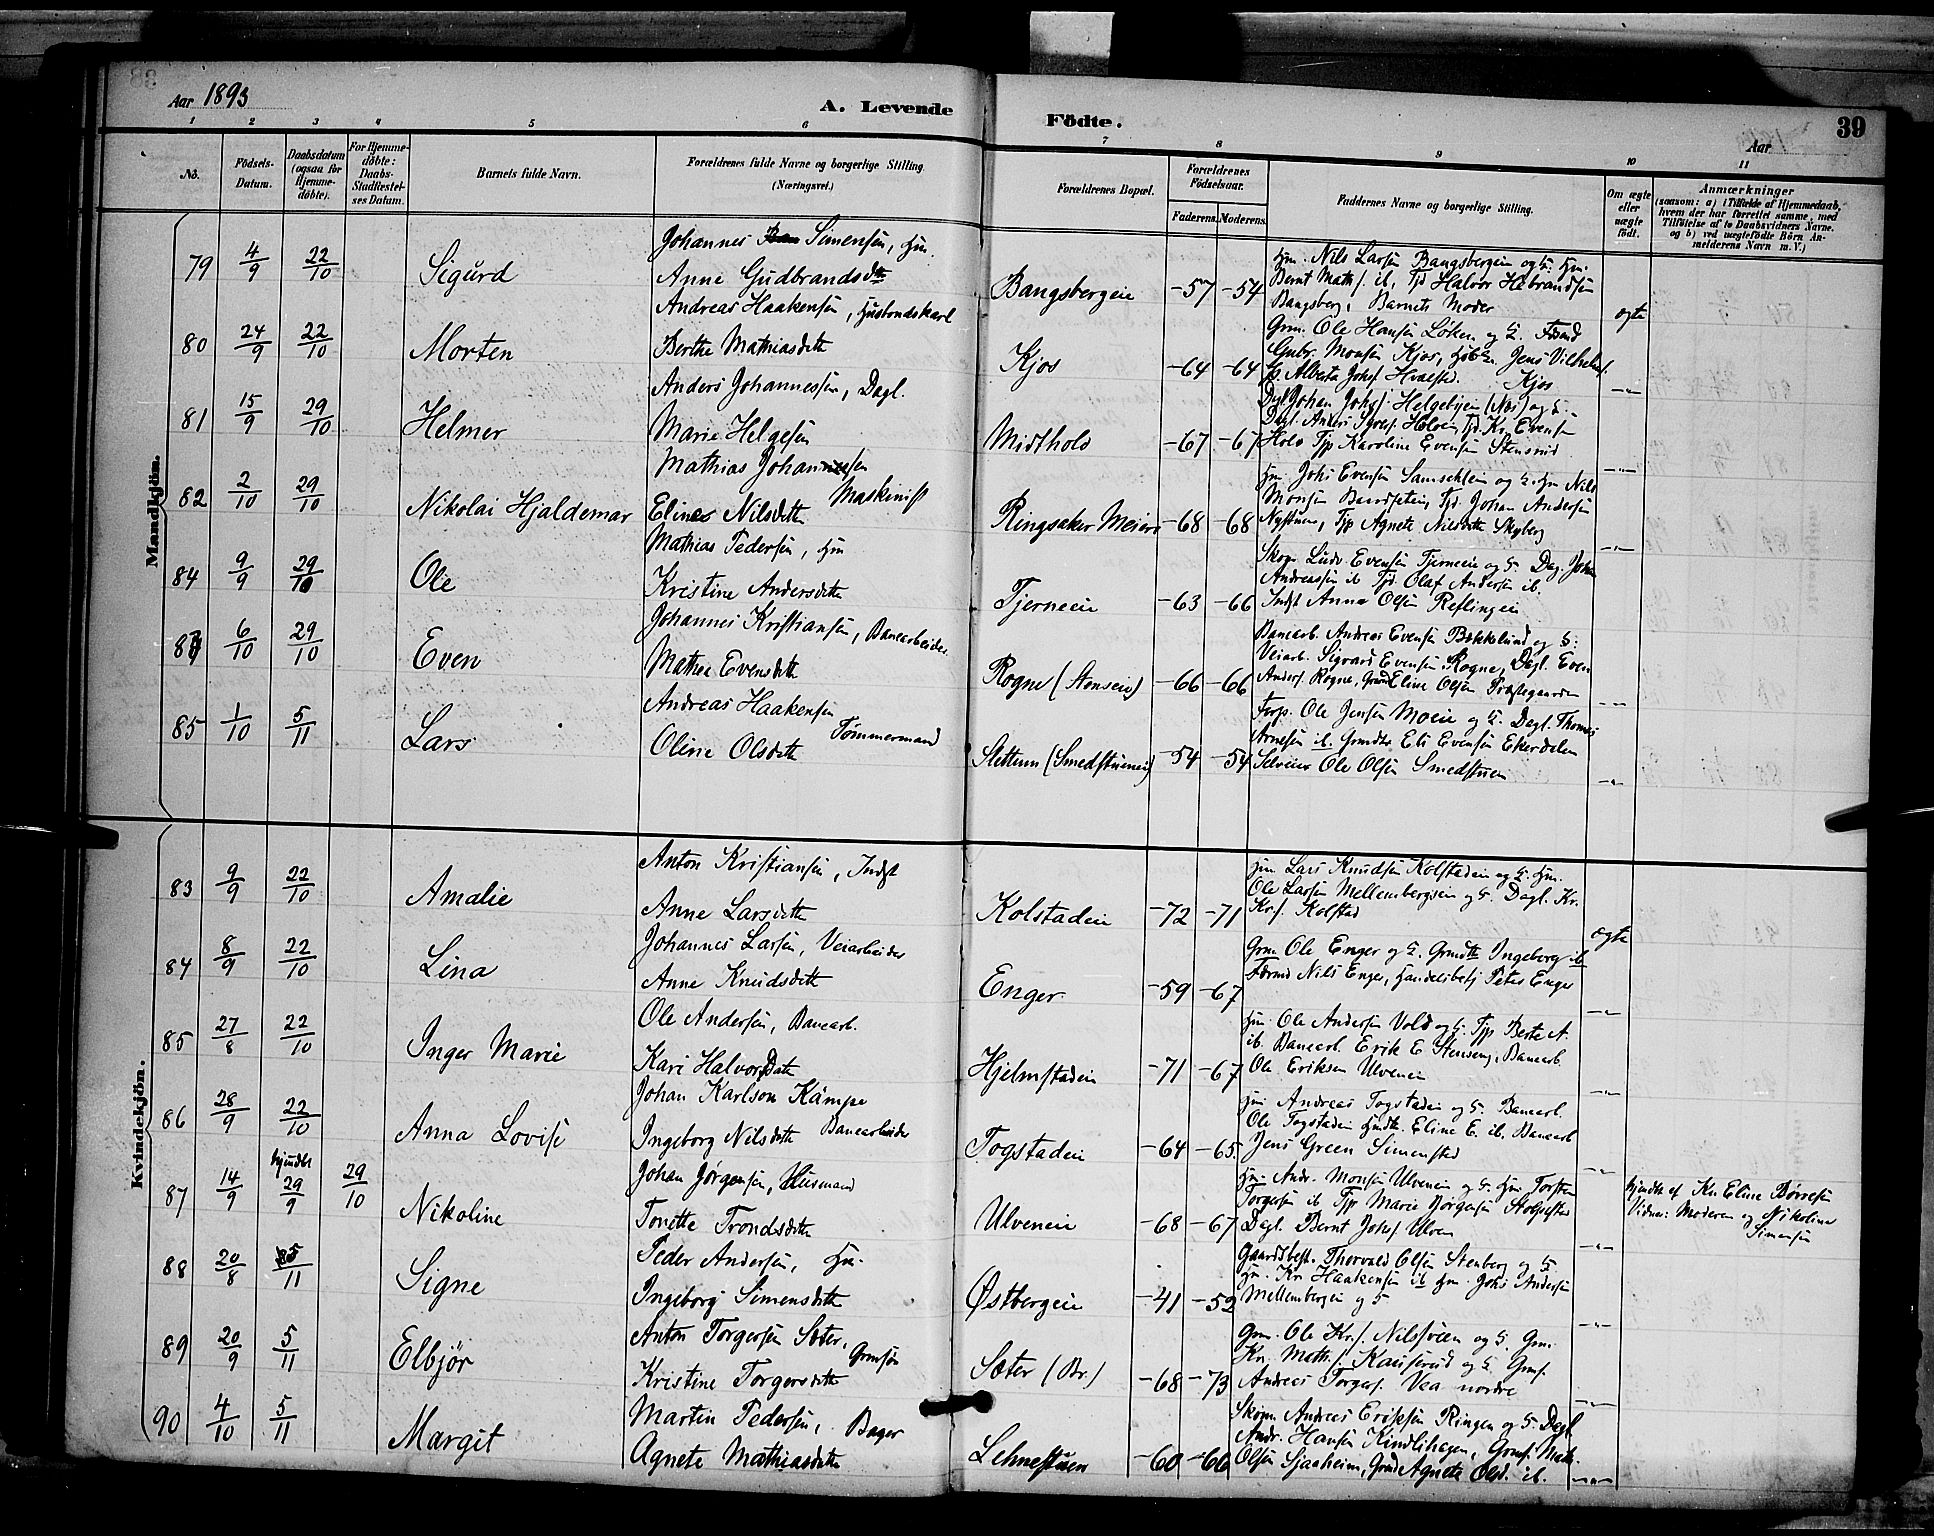 Aar 1893
A. Levende
Födte.
39
Aar
1 2 3 4 5 6 7 8 9 10 11
No.
Födsels-Datum.
Daabsdatum (ogsaa for Hjemme-døbte).
For Hjemme-døbte: Daabs-Stadfæstel-ses Datum.
Barnets fulde Navn.
Forældrenes fulde Navne og borgerlige Stilling (Næringsvei.)
Forældrenes Bopæl.
Forældrenes Födselsaar.
Faderens. Moderens.
Faddernes Navne og borgerlige Stilling.
Om ægte eller uægte født.
Anmærkninger
(saasom: a) i Tilfælde af Hjemmedaab, hvem der har forrettet samme, med Tilföielse af to Daabsvidners Navne, og b) ved uægtefödte Börn An-melderens Navn m. V.)
Mandkjön.
79 4/9 22/10 Sigurd
Johannes Simensen, Hm.
Anne Gudbrandsdtr
Bangsbergeie -57 -54
Hm. Nils Larsen Bangsbergeie og H. Hm.
Bernt Math. ib, Tjd Halvor Hebrandsen
Bangsberg, Barnets Moder
ægte
80 24/9 22/10 Morten
Andreas Haakensen, Husbondskarl
Berthe Mathiasdtr
Kjos -64 -64
Grm. Ole Hansen Løken og H.
Gubr. Monsen Kjos, Jens Vilhelms.
Alberta Johs. Hvalstad. Kjos
-"-
81 15/9 29/10 Helmer
Anders Johannessen, Dagl.
Marie Helgesen
Midthols -67 -67
Dagl Johan Johs. Helgebyen (Næs) og H.
Holo Tjp Karoline Evensen Stensrud
-"-
82 2/10 29/10 Nikolai Hjaldemar
Mathias Johansen
Maskinist
Eline Nilsdtr
Ringsaker Meieri -68 -68
Hm Johs Evensen og H. Hm Nils
Monsen, Tjd. Johan Andersen
Nystuen, Tjp Agnete Nilsdtr Skyberg
-"-
84 9/9 29/10 Ole
Mathias Pedersen, Hm
Kristine Andersdtr
Tjerneeie -63 -66
Skom. Ludv. Evensen Tjerneeie og H. Dag. Johan
Andreassen ib Tjd. Olaf Andersen ib.
Indst Anna Olsen Reslingeie
83 6/10 29/10 Even
Johannes Kristiansen, Banearbeider
Mathea Evensdtr
Rogne (Stenseie) -66 -66
Banearb. Andreas Evensen Bækkelund og H.
Veiarb. Sigvard Evensen Rogne, Dagl. Even
Anders. Rogne, Eline Olsen Præstegaarden
-"-
85 1/10 5/11 Lars
Andreas Haakensen
Tømmermand
Oline Olsdtr
Slettum (Smedstueneie) -54 -54
Forp. Ole Jensen Moeie og H. Dagl. Thomas
Arnesen ib. Grmdtr. Eli Evensen Ekerdalen
Selveier Ole Olsen Smedstuen
-"-
Kvindekjön.
83 9/9 22/10 Amalie
Anton Kristiansen, Indst
Anne Larsdtr
Kolstadeie -72 -71
Hm Lars Knudsen Kolstadeie og H. Hm.
Ole Larsen Mellembergseie og H. Dagl. Kr.
Krs. Kolstad
ægte
84 8/9 22/10 Lina
Johannes Larsen, Veiarbeider
Anne Knudsdtr
Enger -59 -67
Grm Ole Enger og H. Grmdtr Ingeborg ib
Nils Enger, Handelsbetj Peter Enger
-"-
85 27/8 22/10 Inger Marie
Ole Andersen, Banearb.
Kari Halvorsdtr
Hjelmstadeie -71 -67
Hm. Ole Andersen Vold og H. Tjp Berte A.
ib. Banearb. Erik E Stenseng, Banearb.
Ole Eriksen Ulveneie
-"-
86 28/9 22/10 Anna Lovise
Johan Karlson Kämpe
Banearbeider
Ingeborg Nilsdtr
Togstadeie -64 -65.
Hm Andreas Togstadeie og H. Banearb.
Ole Togstadeie Hmdtr. Eline E. ib. Banearb
Jens Green Simenstad
-"-
87 14/9 hjmdbt 29/9 29/10 Nikoline
Johan Jørgensen, Husmand
Tonette Trondsdtr
Ulveneie -68 -67
Hm. Andr. Monsen Ulveneie og H. Hm Torsten
Torgersen ib Tjp Marie Jørgensen
Dagl. Bernt Johs. Ulven
-"-
hjmdbt af Kr. Eline Børresen
Vidner: Moderen og Nikoline
Simensen
88 20/8 5/11 Signe
Peder Andersen, Hm.
Ingeborg Simensdtr
Østbergeie -41 -52
Gaardsbest. Thorvald Olsen Stenberg og H
Hm. Kr. Haakensen ib Hm. Johs Andersen
Mellembergeie og H
-"-
89 20/9 5/11 Elbjør
Anton Torgersen Sæter, Grmsøn
Kristine Torgersdtr
Sæter (Br.) -68 -73
Grm. Ole Krs. Nilsveen og H. Grm.
Kr. Math. Kauserud og H. Grms.
Andreas Torgers. Vea nordre
-"-
90 4/10 5/11 Margit
Martin Pedersen, Bager
Agnete Mathiasdtr
Lehnestuen -60 -66
Skom Andreas Eriksen Ringen og H Dagl
Andr. Hansen Kindlihagen, Grms. Math.
Olsen Sjaaheim, Agnete Olsd. ib.
-"-